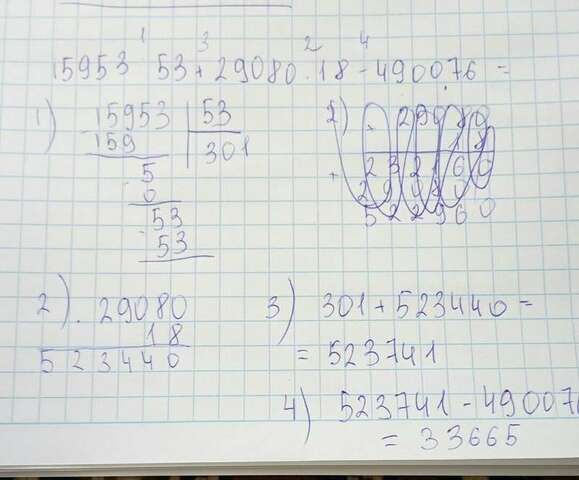 1 3 2 4
15953 53 + 29080 · 18 - 490076 =
1) 15953 | 53
- 159 301
5
- 0
53
- 53
2) 29080
18
+ 23
52 2960
2) · 29080
18
523440
3) 301 + 523440 =
= 523741
4) 523741 - 490076
= 33665